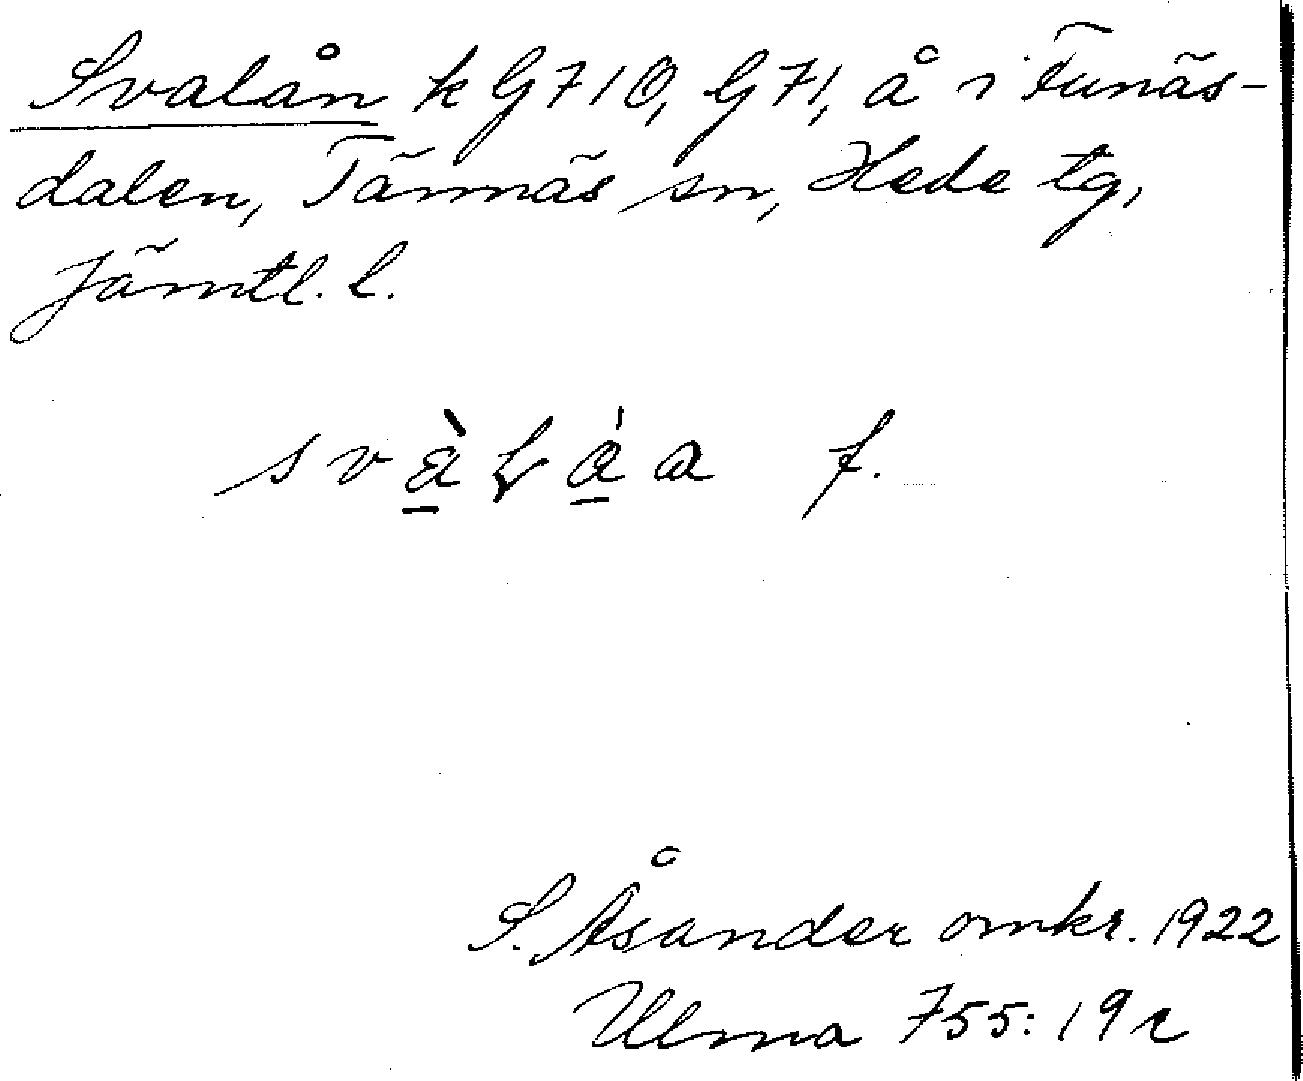 Svalån k G710, G71, å i Funäs-
dalen, Tännäs sn, Hede tg,
Jämtl. l.
f.
S. Åsander omkr. 1922
Ulma 755: 19